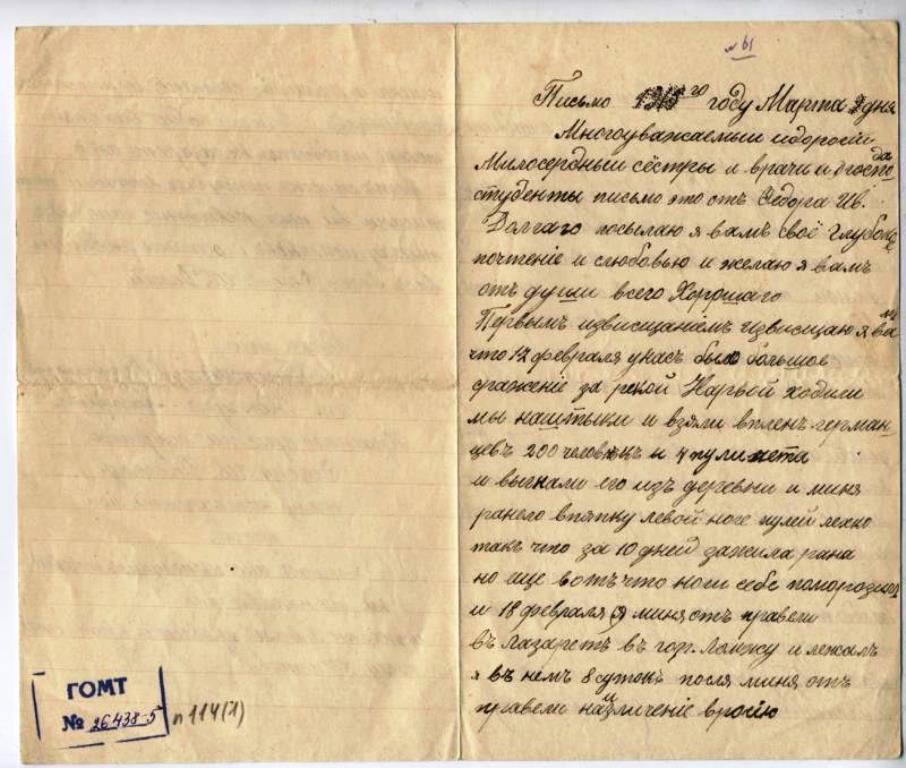 № 61
Письмо 1915го году Марта 9 дня
Многоуважаемыи идорогїи
Милосердныи сёстры и врачи и господа
студенты писмо это отъ Федора Ив.
Долгаго посылаю я вамъ своё глубоко
почтенїе и слюбовью и желаю я вамъ
отъ души всего Хорошаго
Первымъ извисщанїемъ извисщаю я вамъ
что 12 февраля унасъ было большое
сражение за рекой Нарвой ходили
мы наштыки и взяли вплен герман-
цевъ 200 человекъ и 4 пулимета
и выгнали его изъ деревни и миня
ранело впятку левой ноге пулей лехко
такъ что за 10 дней зажила рана
но еще вотъ что ноги себе поморозил
и 18 февраля миня отъ правели
въ Лазаретъ въ гор. Ломжу и лежалъ
я въ немъ 8 сутокъ посля миня отъ
правели наизличенїе вросїю
ГОМТ
№ 26438-5
п 114(1)